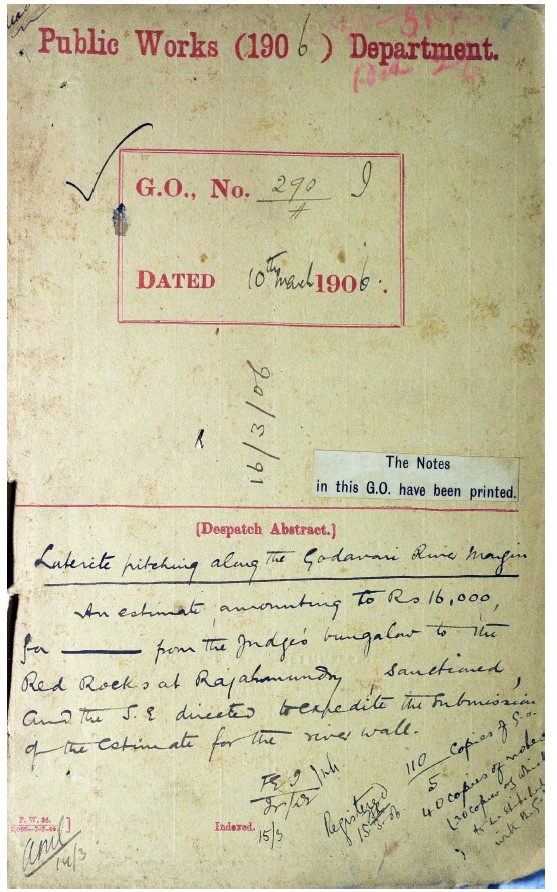 Public Works (1906) Department.
G.O., No. 290 I
DATED 10th March 1906.
16/3/06
The Notes
in this G.O. have been printed.
[Despatch Abstract.]
Laterite pitching along the Godavari River Margin
An estimate, amounting to Rs 16,000,
for ——— from the Judge's bungalow to the
Red Rocks at Rajahmundry, sanctioned,
and the S.E directed to expedite the submission
of the estimate for the river wall.
110 Copies of G.O.
5
40 copies of notes
(30 copies of which
to be stitched
with the G.O.
Registered
15-3-06
Indexed.
15/3
P. W. 26.
14/3